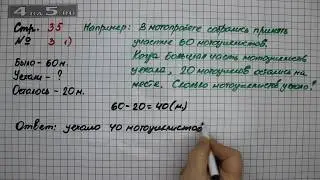 4 на 5.RU
Стр. 35
№ 3 1)
Например: В мотопробеге собрались принять
участие 60 мотоциклистов.
Когда большая часть мотоциклистов
уехала, 20 мотоциклистов остались на
месте. Сколько мотоциклистов уехало?
Было - 60м.
Уехали - ?
Осталось - 20м.
60-20=40(м)
Ответ: уехало 40 мотоциклистов